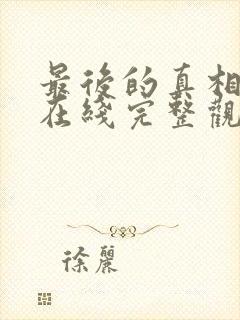 最後的真相
在綫完整觀
徐麗